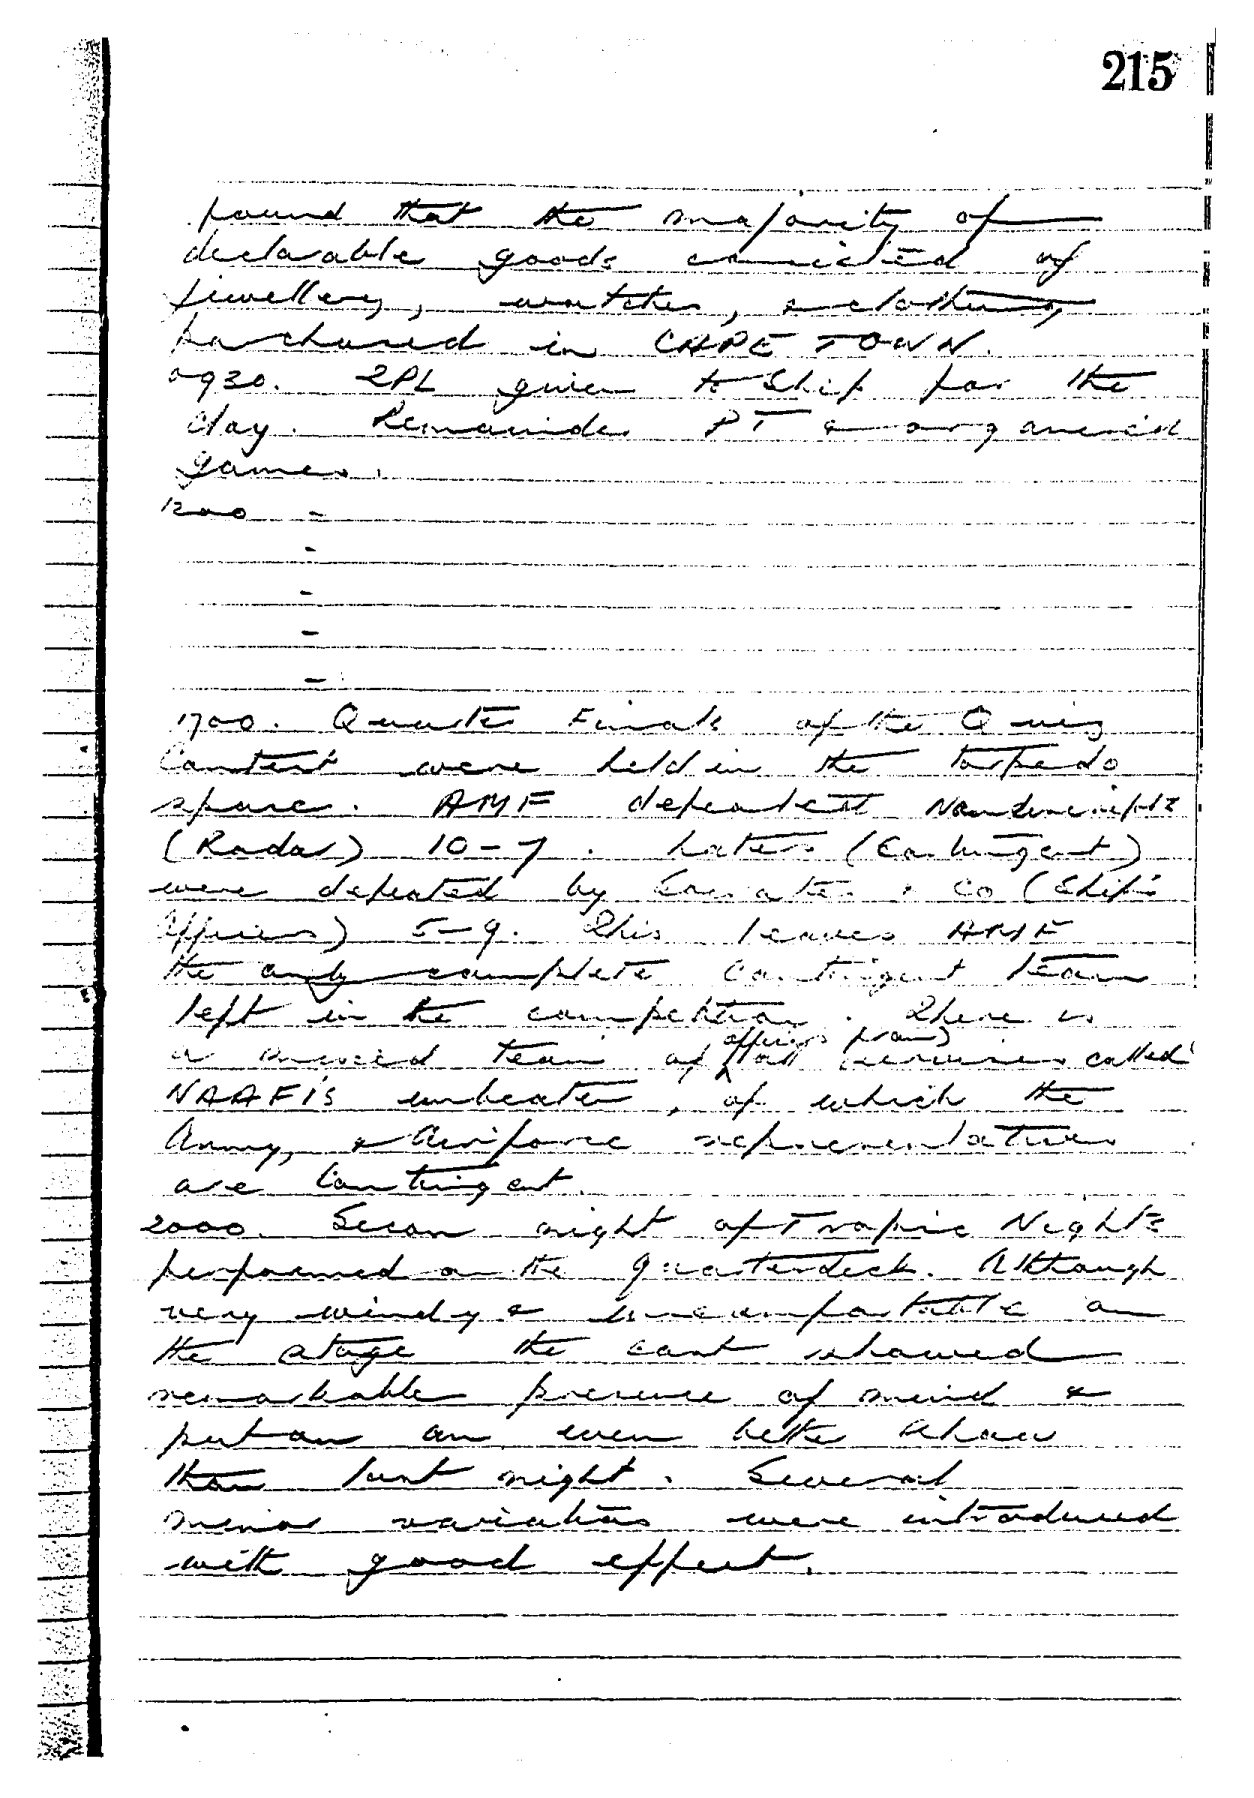 215
found that the majority of
declarable goods consisted of
jewellery, watches, & clothing
purchased in CAPE TOWN.
0930. 2PL given to Ship for the
day. Remainder PT & organised
games.
1200 -
-
-
-
-
1700. Quarter Finals of the Quiz
Contest were held in the torpedo
space. AMF defeated Nondescripts
(Radar) 10-7. Laters (Contingent)
were defeated by Socrates & Co (Ship's
Officers) 5-9. This leaves AMF
the only complete Contingent team
left in the competition. There is
officers from
a mixed team of all services called
NAAFI's unbeaten, of which the
Army, & Airforce representatives
are Contingent.
2000. Secon night of Tropic Nights
performed on the Quarterdeck. Although
very windy & uncomfortable on
the stage the cast showed
remarkable presence of mind &
put on an even better show
than last night. Several
minor variations were introduced
with good effect.